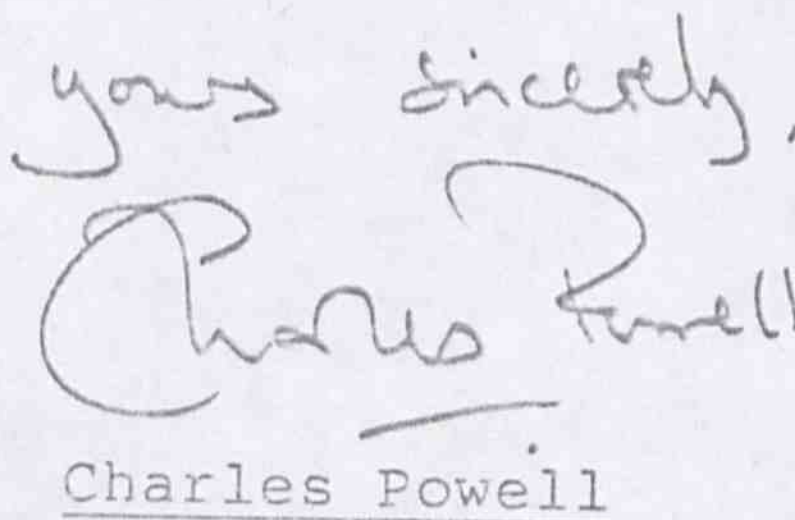 yours sincerely,
Charles Powell
Charles Powell